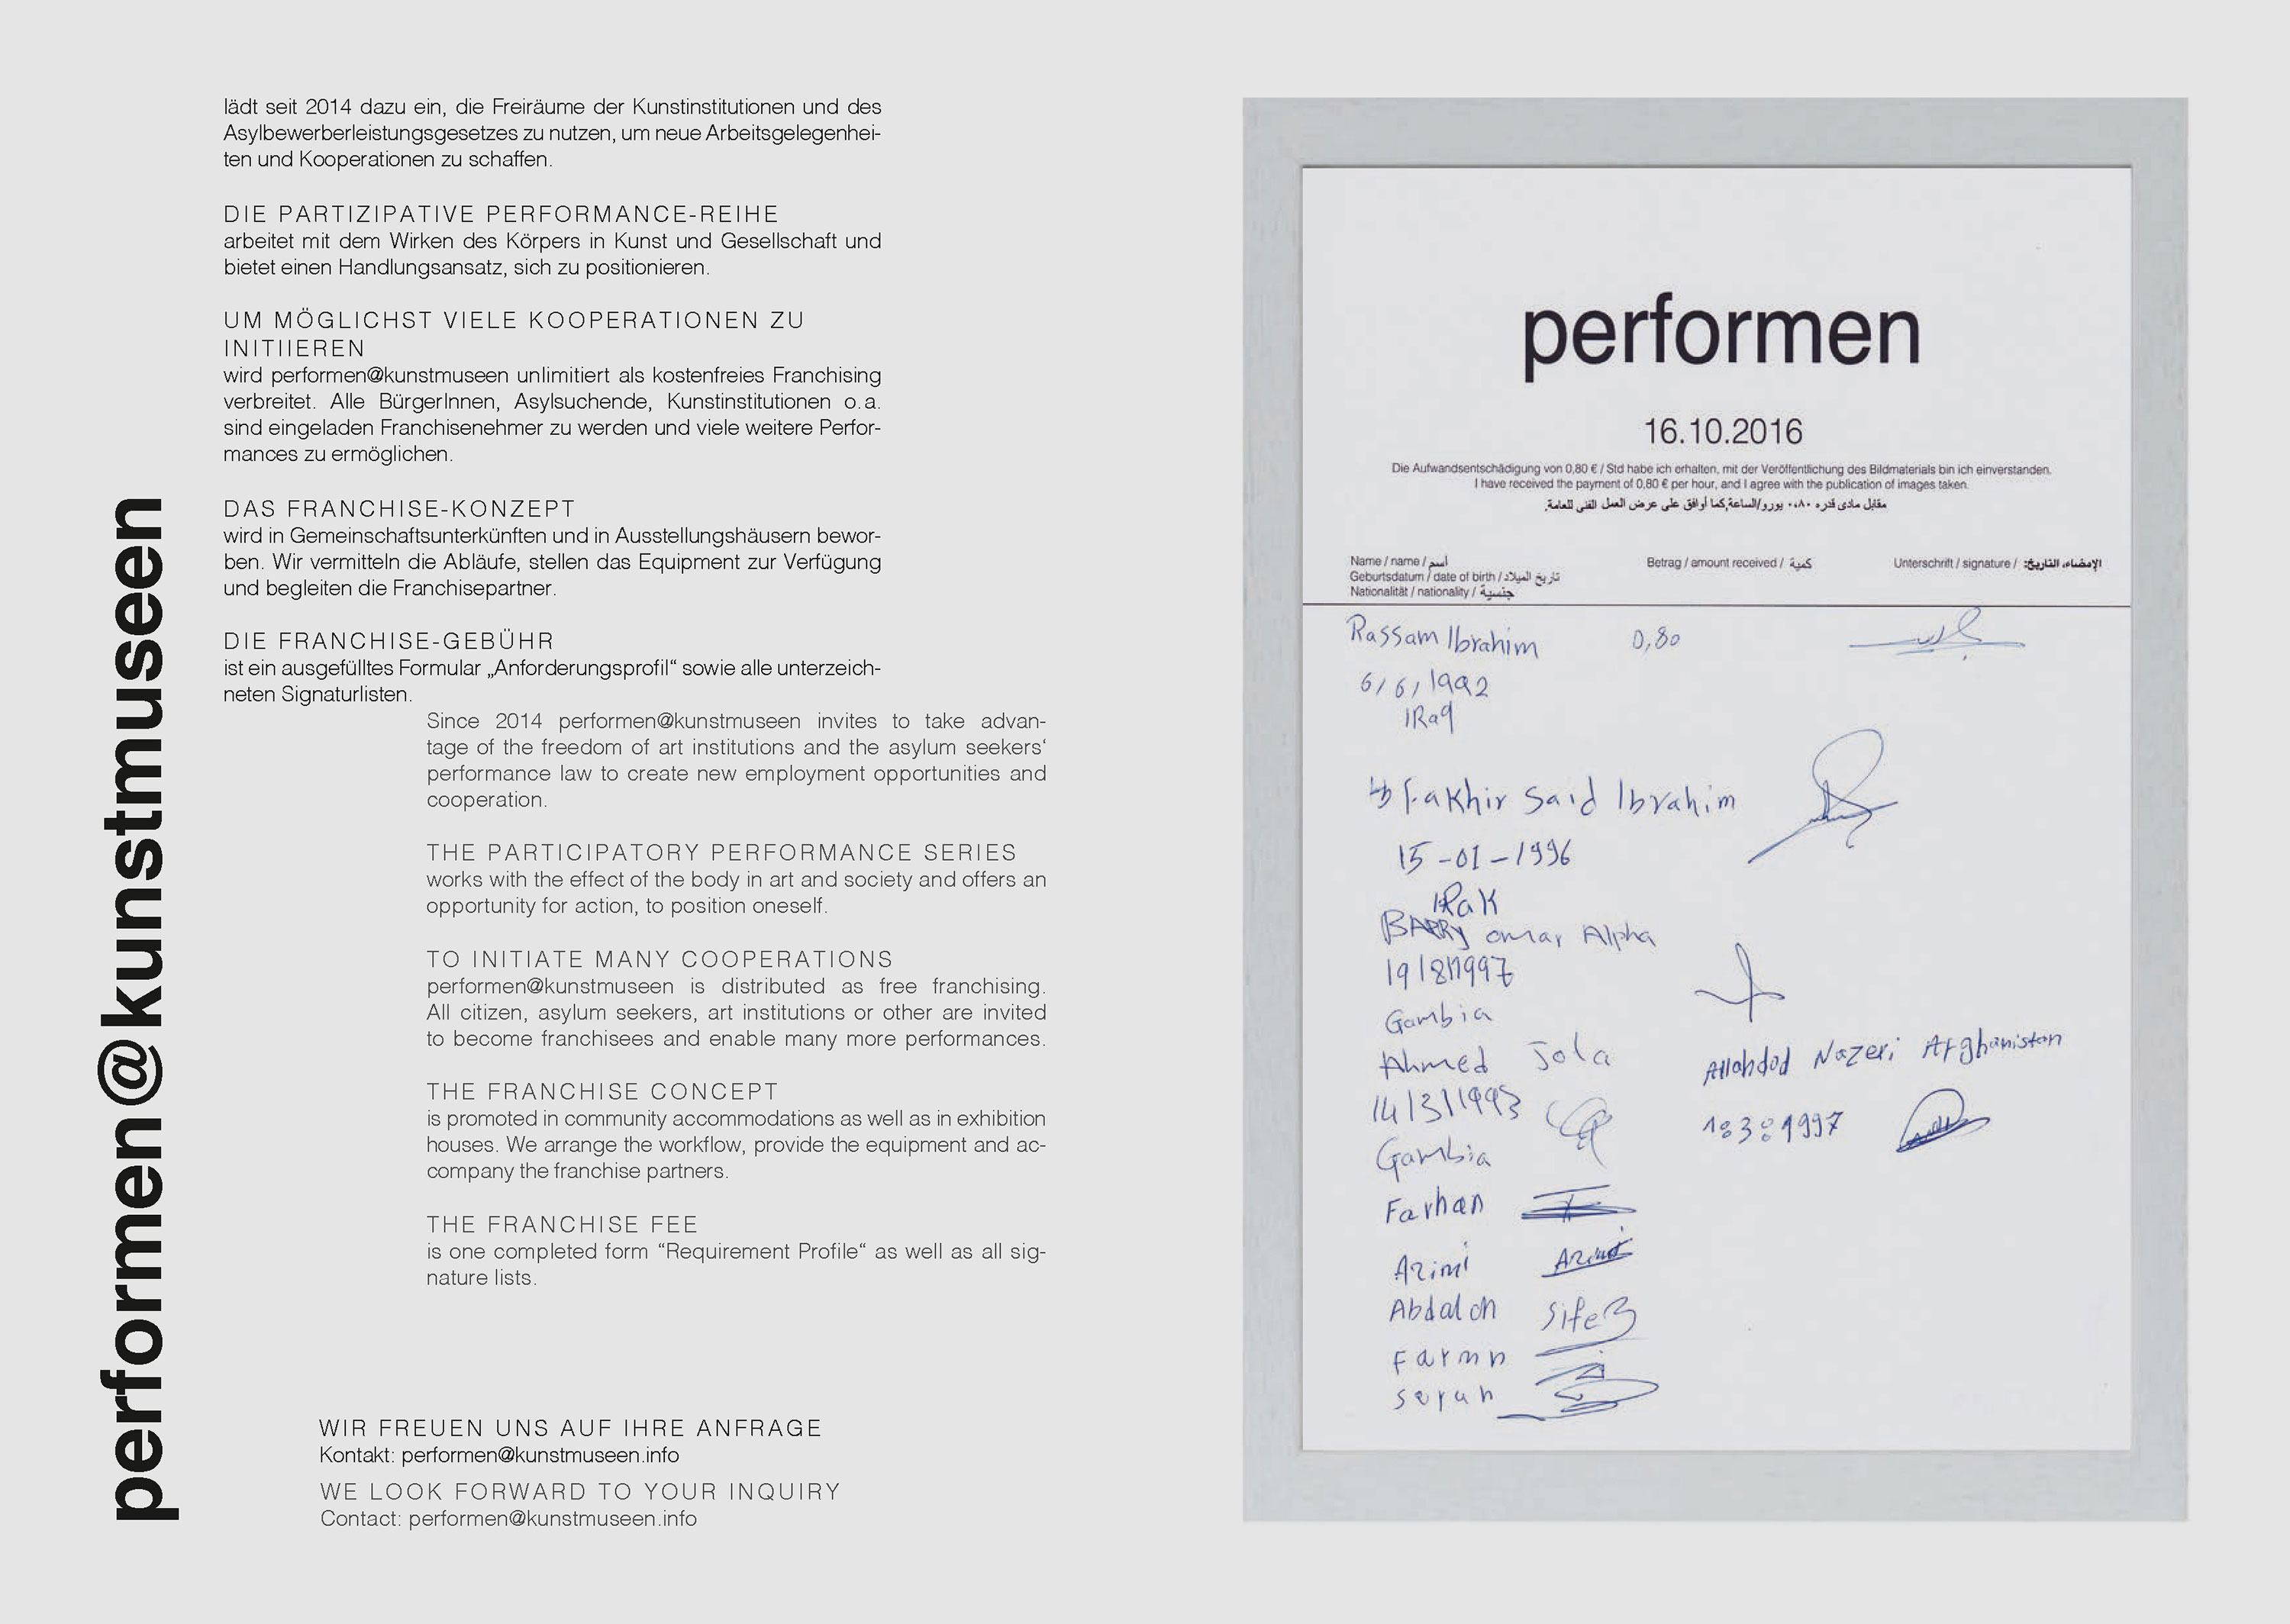 performen@kunstmuseen
lädt seit 2014 dazu ein, die Freiräume der Kunstinstitutionen und des
Asylbewerberleistungsgesetzes zu nutzen, um neue Arbeitsgelegenhei-
ten und Kooperationen zu schaffen.
DIE PARTIZIPATIVE PERFORMANCE-REIHE
arbeitet mit dem Wirken des Körpers in Kunst und Gesellschaft und
bietet einen Handlungsansatz, sich zu positionieren.
UM MÖGLICHST VIELE KOOPERATIONEN ZU
INITIIEREN
wird performen@kunstmuseen unlimitiert als kostenfreies Franchising
verbreitet. Alle BürgerInnen, Asylsuchende, Kunstinstitutionen o.a.
sind eingeladen Franchisenehmer zu werden und viele weitere Perfor-
mances zu ermöglichen.
DAS FRANCHISE-KONZEPT
wird in Gemeinschaftsunterkünften und in Ausstellungshäusern bewor-
ben. Wir vermitteln die Abläufe, stellen das Equipment zur Verfügung
und begleiten die Franchisepartner.
DIE FRANCHISE-GEBÜHR
ist ein ausgefülltes Formular „Anforderungsprofil“ sowie alle unterzeich-
neten Signaturlisten.
Since 2014 performen@kunstmuseen invites to take advan-
tage of the freedom of art institutions and the asylum seekers‘
performance law to create new employment opportunities and
cooperation.
THE PARTICIPATORY PERFORMANCE SERIES
works with the effect of the body in art and society and offers an
opportunity for action, to position oneself.
TO INITIATE MANY COOPERATIONS
performen@kunstmuseen is distributed as free franchising.
All citizen, asylum seekers, art institutions or other are invited
to become franchisees and enable many more performances.
THE FRANCHISE CONCEPT
is promoted in community accommodations as well as in exhibition
houses. We arrange the workflow, provide the equipment and ac-
company the franchise partners.
THE FRANCHISE FEE
is one completed form “Requirement Profile“ as well as all sig-
nature lists.
WIR FREUEN UNS AUF IHRE ANFRAGE
Kontakt: performen@kunstmuseen.info
WE LOOK FORWARD TO YOUR INQUIRY
Contact: performen@kunstmuseen.info
performen
16.10.2016
Die Aufwandsentschädigung von 0,80 € / Std habe ich erhalten, mit der Veröffentlichung des Bildmaterials bin ich einverstanden.
I have received the payment of 0,80 € per hour, and I agree with the publication of images taken.
مقابل مادى قدره ٠،٨٠ يورو/الساعة,كما أوافق على عرض العمل الفنى للعامة.
Name / name / اسم
Geburtsdatum / date of birth / تاريخ الميلاد
Nationalität / nationality / جنسية
Betrag / amount received / كمية
Unterschrift / signature / الإمضاء، التاريخ:
Rassam Ibrahim 0,80
6/6/1992
IRaq
Fakhir Said Ibrahim
15-01-1996
IRaK
BARRY omar Alpha
19/8/1997
Gambia
Ahmed Jola
14/3/1993
Gambia
Allahdad Nazeri Afghanistan
18:3:1997
Farhan
Azimi Azimi
Abdaloh
Farmn